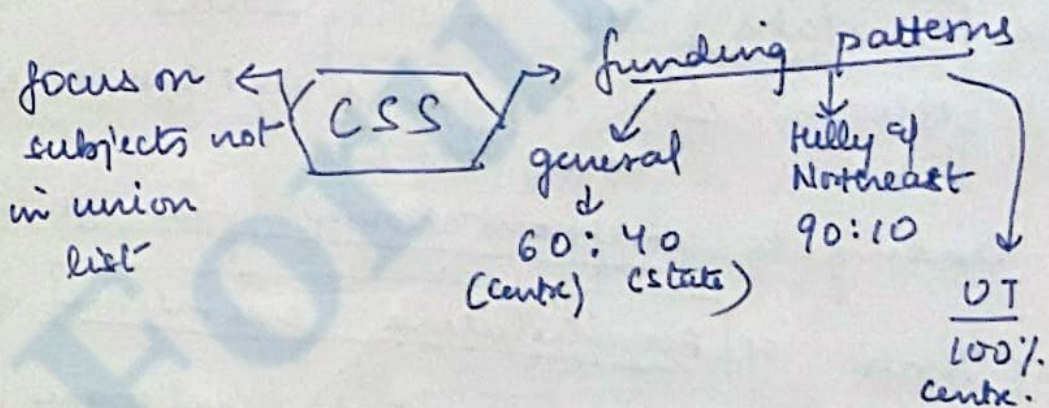 focus on
subjects not
in union
list
CSS
funding patterns
general
60:40
(centre) (state)
Hilly &
Northeast
90:10
UT
100%
centre.